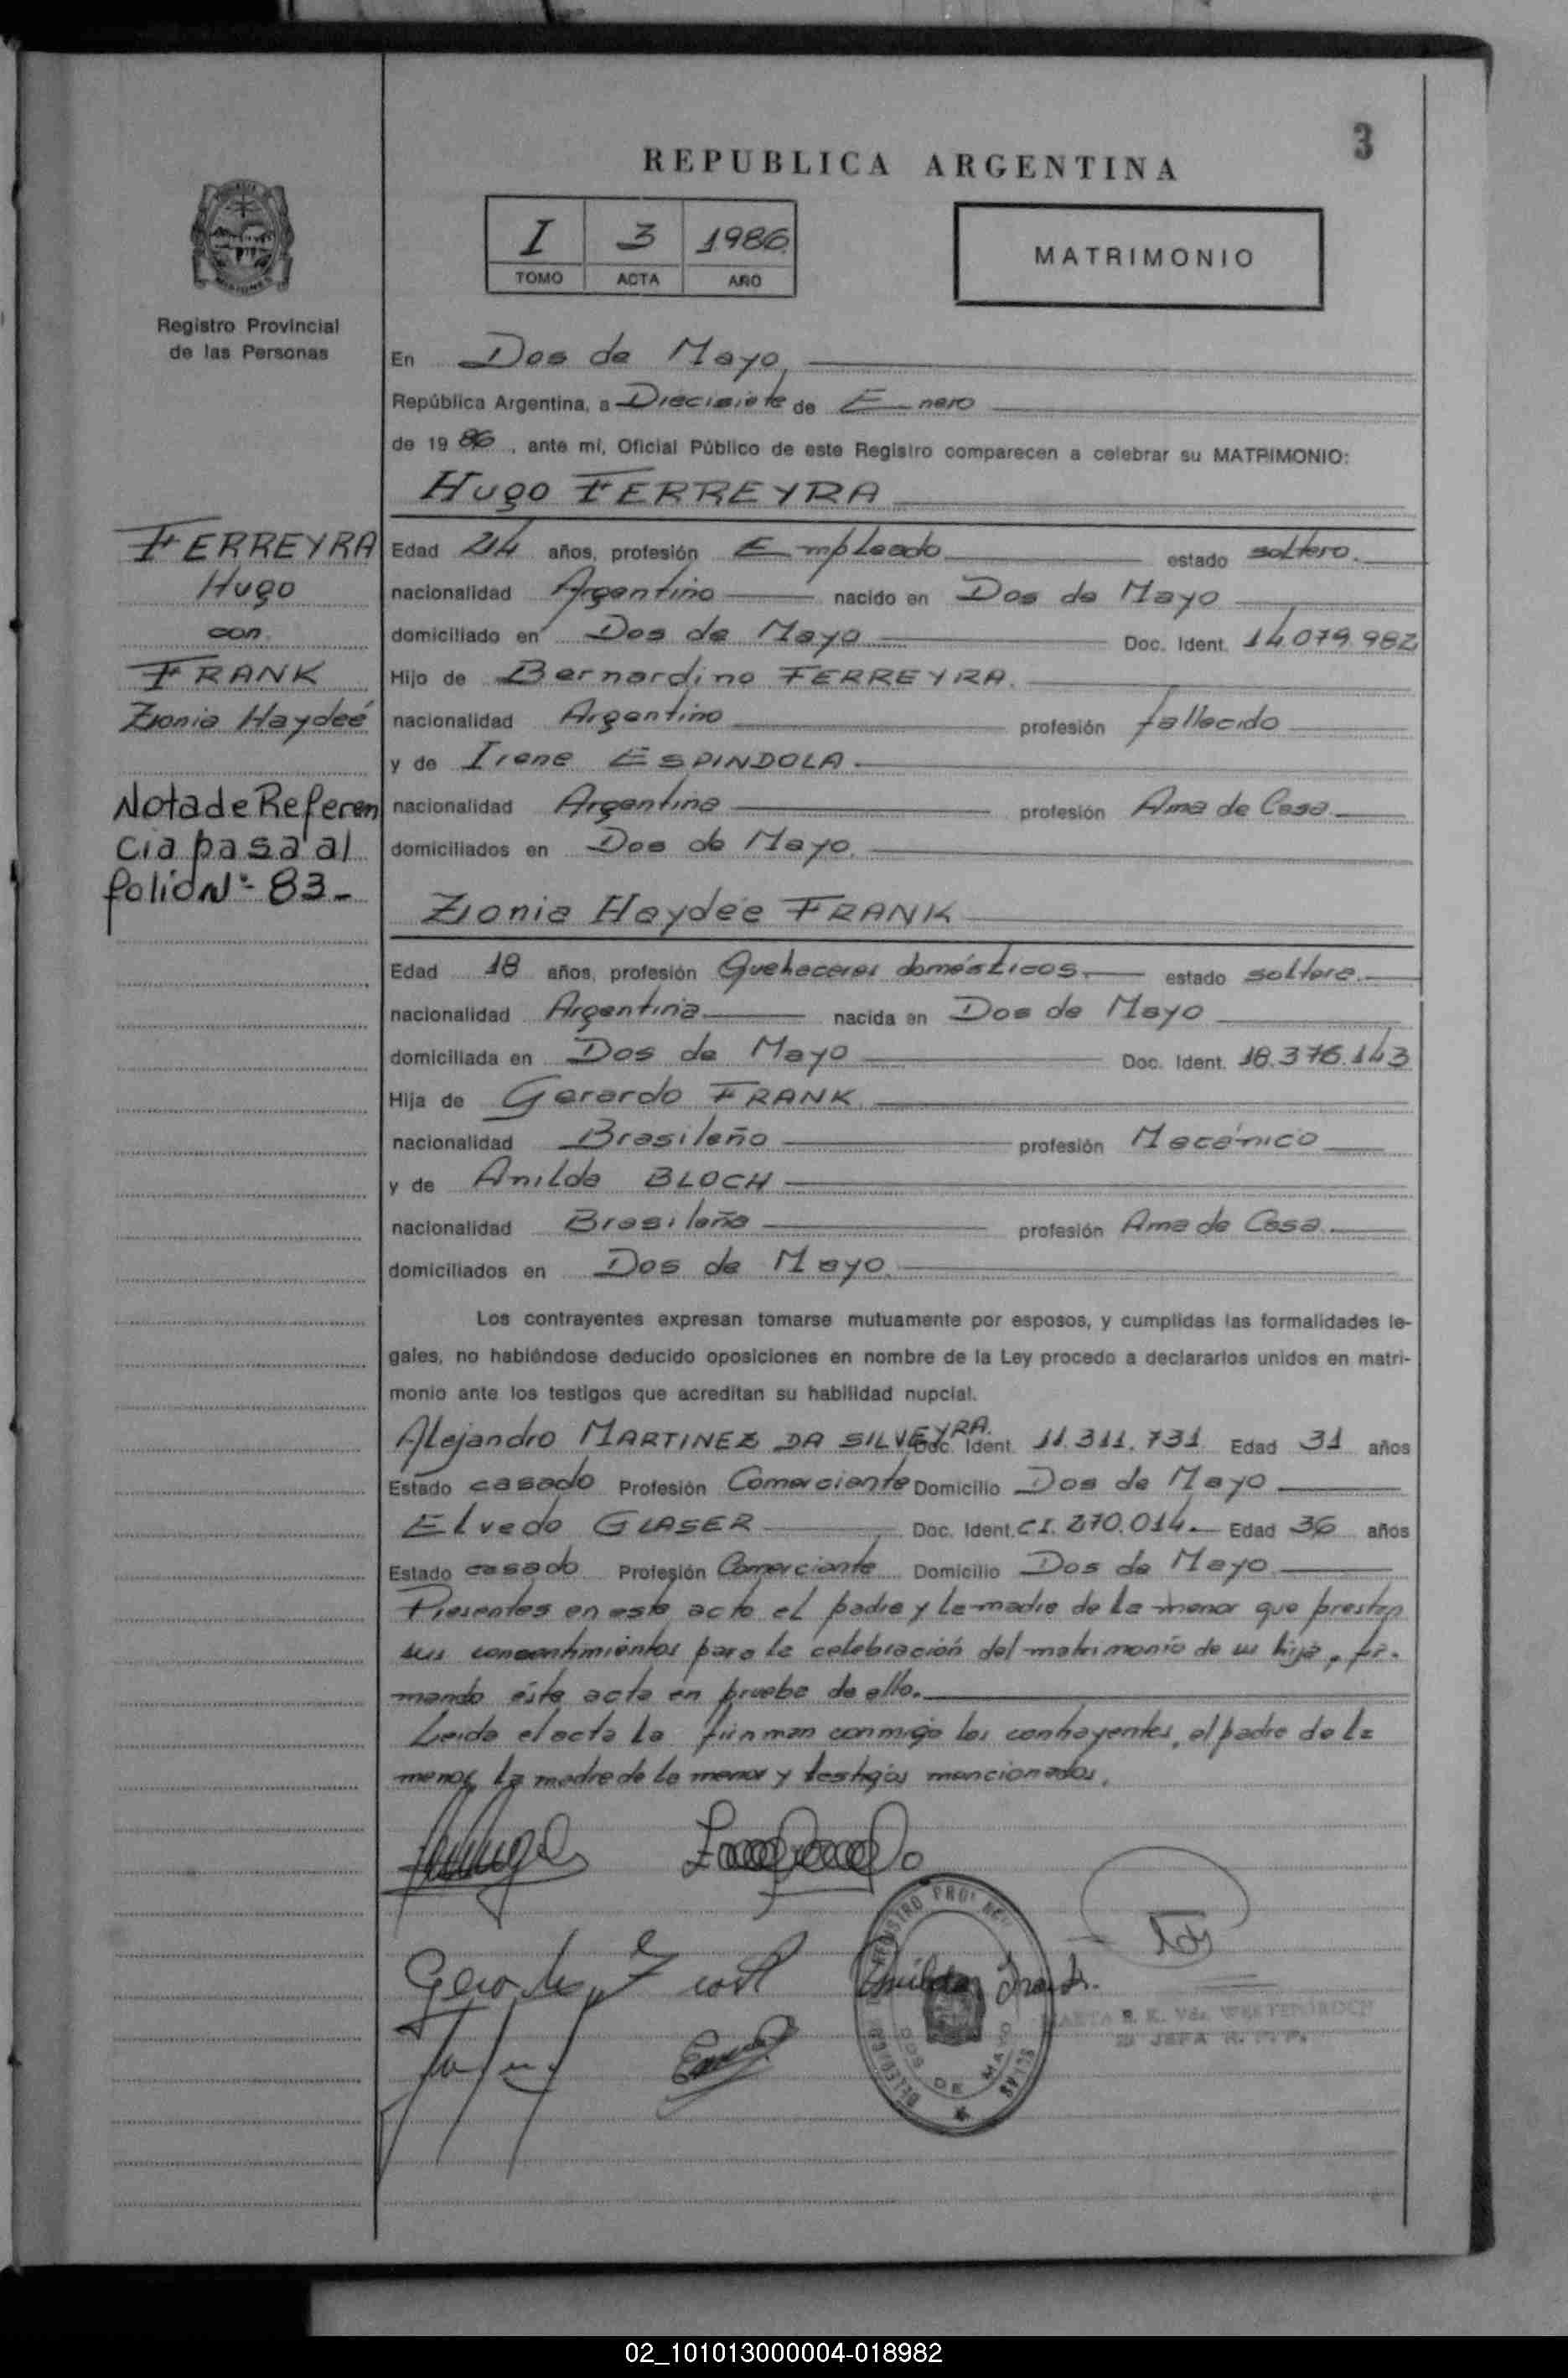 3
REPUBLICA ARGENTINA
I 3 1986
TOMO ACTA AÑO
MATRIMONIO
Registro Provincial
de las Personas
En Dos de Mayo,
República Argentina, a Diecisiete de Enero
de 19 86, ante mí, Oficial Público de este Registro comparecen a celebrar su MATRIMONIO:
Hugo FERREYRA
FERREYRA
Hugo
con
FRANK
Zonia Haydeé
Nota de Referen
cia pasa al
folio Nº 83-
Edad 24 años, profesión Empleado estado soltero.
nacionalidad Argentino nacido en Dos de Mayo
domiciliado en Dos de Mayo Doc. Ident. 14.079.982
Hijo de Bernardino FERREYRA.
nacionalidad Argentino profesión fallecido
y de Irene ESPINDOLA.
nacionalidad Argentina profesión Ama de Casa.
domiciliados en Dos de Mayo.
Zonia Haydeé FRANK
Edad 18 años, profesión Quehaceres domésticos. estado soltera.
nacionalidad Argentina nacida en Dos de Mayo
domiciliada en Dos de Mayo Doc. Ident. 18.376.143
Hija de Gerardo FRANK
nacionalidad Brasileño profesión Mecánico
y de Anilda BLOCH
nacionalidad Brasileña profesión Ama de Casa.
domiciliados en Dos de Mayo.
Los contrayentes expresan tomarse mutuamente por esposos, y cumplidas las formalidades le-
gales, no habiéndose deducido oposiciones en nombre de la Ley procedo a declararlos unidos en matri-
monio ante los testigos que acreditan su habilidad nupcial.
Alejandro MARTINEZ DA SILVEYRA. Doc. Ident. 11.311.731 Edad 31 años
Estado casado Profesión Comerciante Domicilio Dos de Mayo
Elvedo GLASER Doc. Ident. C.I. 270.014. Edad 36 años
Estado casado Profesión Comerciante Domicilio Dos de Mayo
Presentes en este acto el padre y la madre de la menor que prestan
sus consentimientos para la celebración del matrimonio de su hija, fir-
mando ésta acta en prueba de ello.
Leída el acta la firman conmigo los contrayentes, el padre de la
menor, la madre de la menor y testigos mencionados.
Anilda Frank.
DOS DE MAYO
JEFA R. P. P.
02_101013000004-018982